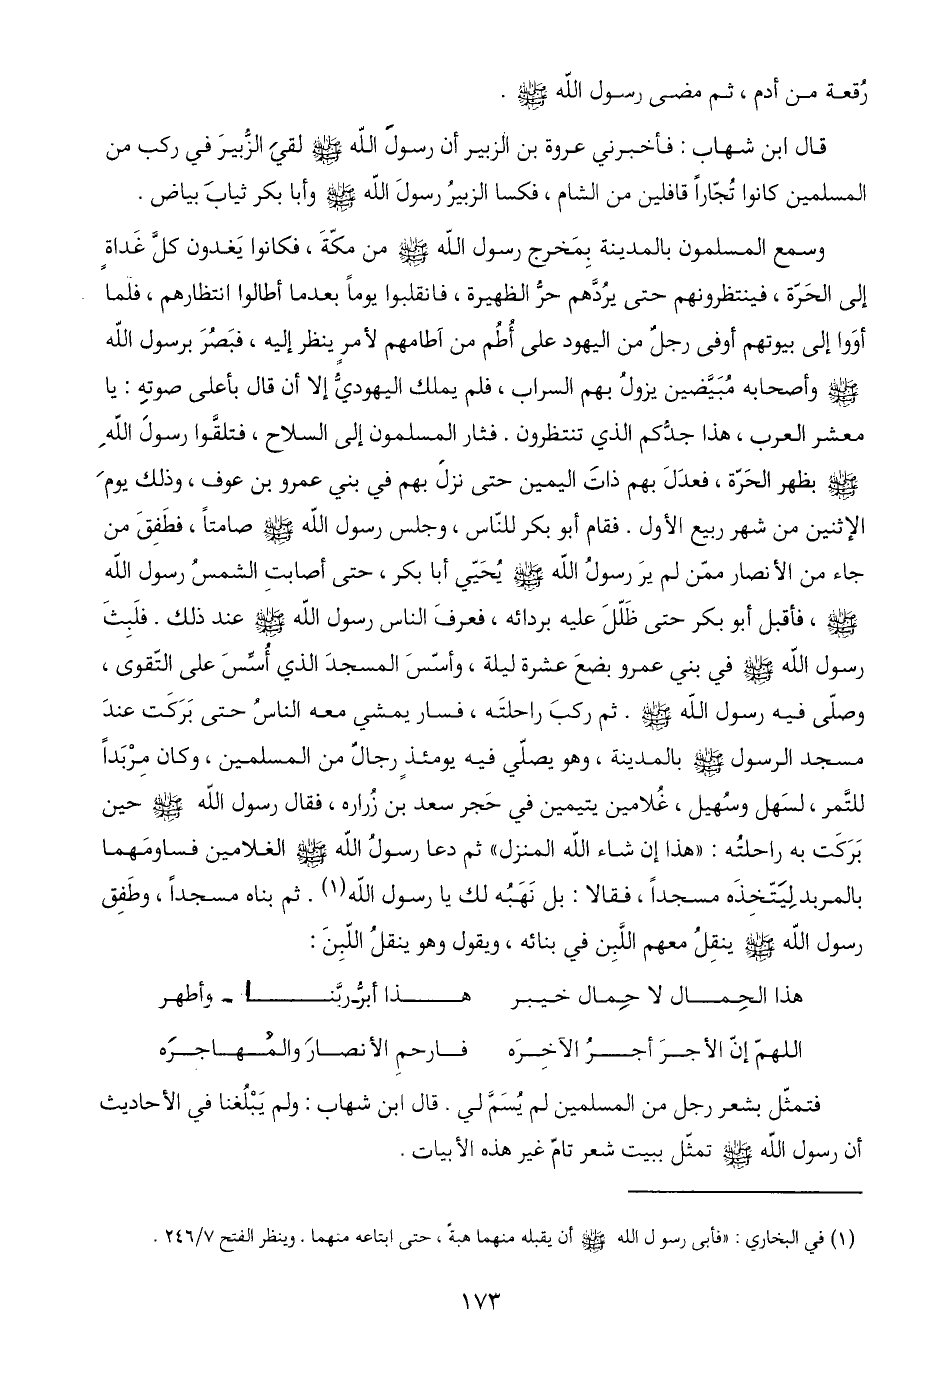 رُقعـة مـن أدم ، ثـم مضـى رسول اللّه ﷺ .
قـال ابن شهاب : فـأخبرني عروة بن الزبير أن رسولَ اللّه ﷺ لقيَ الزُّبيرَ في ركب من
المسلمين كانوا تُجّاراً قافلين من الشام ، فكسا الزبيرُ رسولَ اللّه ﷺ وأبا بكر ثيابَ بياض .
وسمع المسلمون بالمدينة بِمَخرج رسول اللّه ﷺ من مكّةَ ، فكانوا يَغدون كلَّ غَداةٍ
إلى الحَرّة ، فينتظرونهم حتى يرُدَّهم حرُّ الظهيرة ، فانقلبوا يوماً بعدما أطالوا انتظارهم ، فلما
أووا إلى بيوتهم أوفى رجلٌ من اليهود على أُطُم من آطامهم لأمرٍ ينظر إليه ، فبَصُرَ برسول اللّه
ﷺ وأصحابه مُبَيَّضين يزولُ بهم السراب ، فلم يملك اليهوديُّ إلا أن قال بأعلى صوتهِ : يا
معشر العرب ، هذا جدُّكم الذي تنتظرون . فثار المسلمون إلى السلاح ، فتلقَّوا رسولَ اللّهِ
ﷺ بظهر الحَرّة ، فعدَلَ بهم ذاتَ اليمين حتى نزلَ بهم في بني عمرو بن عوف ، وذلك يومَ
الإثنين من شهر ربيع الأول . فقام أبو بكر للنّاس ، وجلس رسول اللّه ﷺ صامتاً ، فطَفِقَ من
جاء من الأنصار ممّن لم يرَ رسولُ اللّه ﷺ يُحَيّي أبا بكر ، حتى أصابتِ الشمسُ رسول اللّه
ﷺ ، فأقبل أبو بكر حتى ظَلَّلَ عليه بردائه ، فعرفَ الناس رسول اللّه ﷺ عند ذلك . فلَبِثَ
رسول اللّه ﷺ في بني عمرو بضعَ عشرة ليلة ، وأسّسَ المسجدَ الذي أُسِّسَ على التّقوى ،
وصلّى فيه رسول اللّه ﷺ . ثم ركبَ راحلتَه ، فسار يمشي معه الناسُ حتى بَرَكَت عندَ
مسجد الرسول ﷺ بالمدينة ، وهو يصلّي فيه يومئذٍ رجالٌ من المسلمين ، وكان مِرْبَداً
للتَّمر ، لسَهل وسُهيل ، غُلامين يتيمين في حَجر سعد بن زُراره ، فقال رسول اللّه ﷺ حين
بَرَكَت به راحلتُه : «هذا إن شاء اللّه المنزل» ثم دعا رسولُ اللّه ﷺ الغلامين فساومَهما
بالمربد لِيَتّخِذَه مسجداً ، فقالا : بل نَهَبُه لك يا رسول اللّه(١) . ثم بناه مسجداً ، وطَفِق
رسول اللّه ﷺ ينقِلُ معهم اللَّبِن في بنائه ، ويقول وهو ينقلُ اللّبِنَ :
هذا الحِمـــال لا حِمال خيبر هـــذا أبرُّ ربَّنـــا ـ وأطهر
اللهمّ إنّ الأجرَ أجـــرُ الآخِره فـارحمِ الأنصـارَ والمُهـاجـرَه
فتمثّل بشعر رجل من المسلمين لم يُسَمَّ لي . قال ابن شهاب : ولم يَبْلُغنا في الأحاديث
أن رسول اللّه ﷺ تمثّل ببيت شعر تامّ غير هذه الأبيات .
(١) في البخاري : «فأبى رسول الله ﷺ أن يقبله منهما هبةً ، حتى ابتاعه منهما . وينظر الفتح ٢٤٦/٧ .
١٧٣